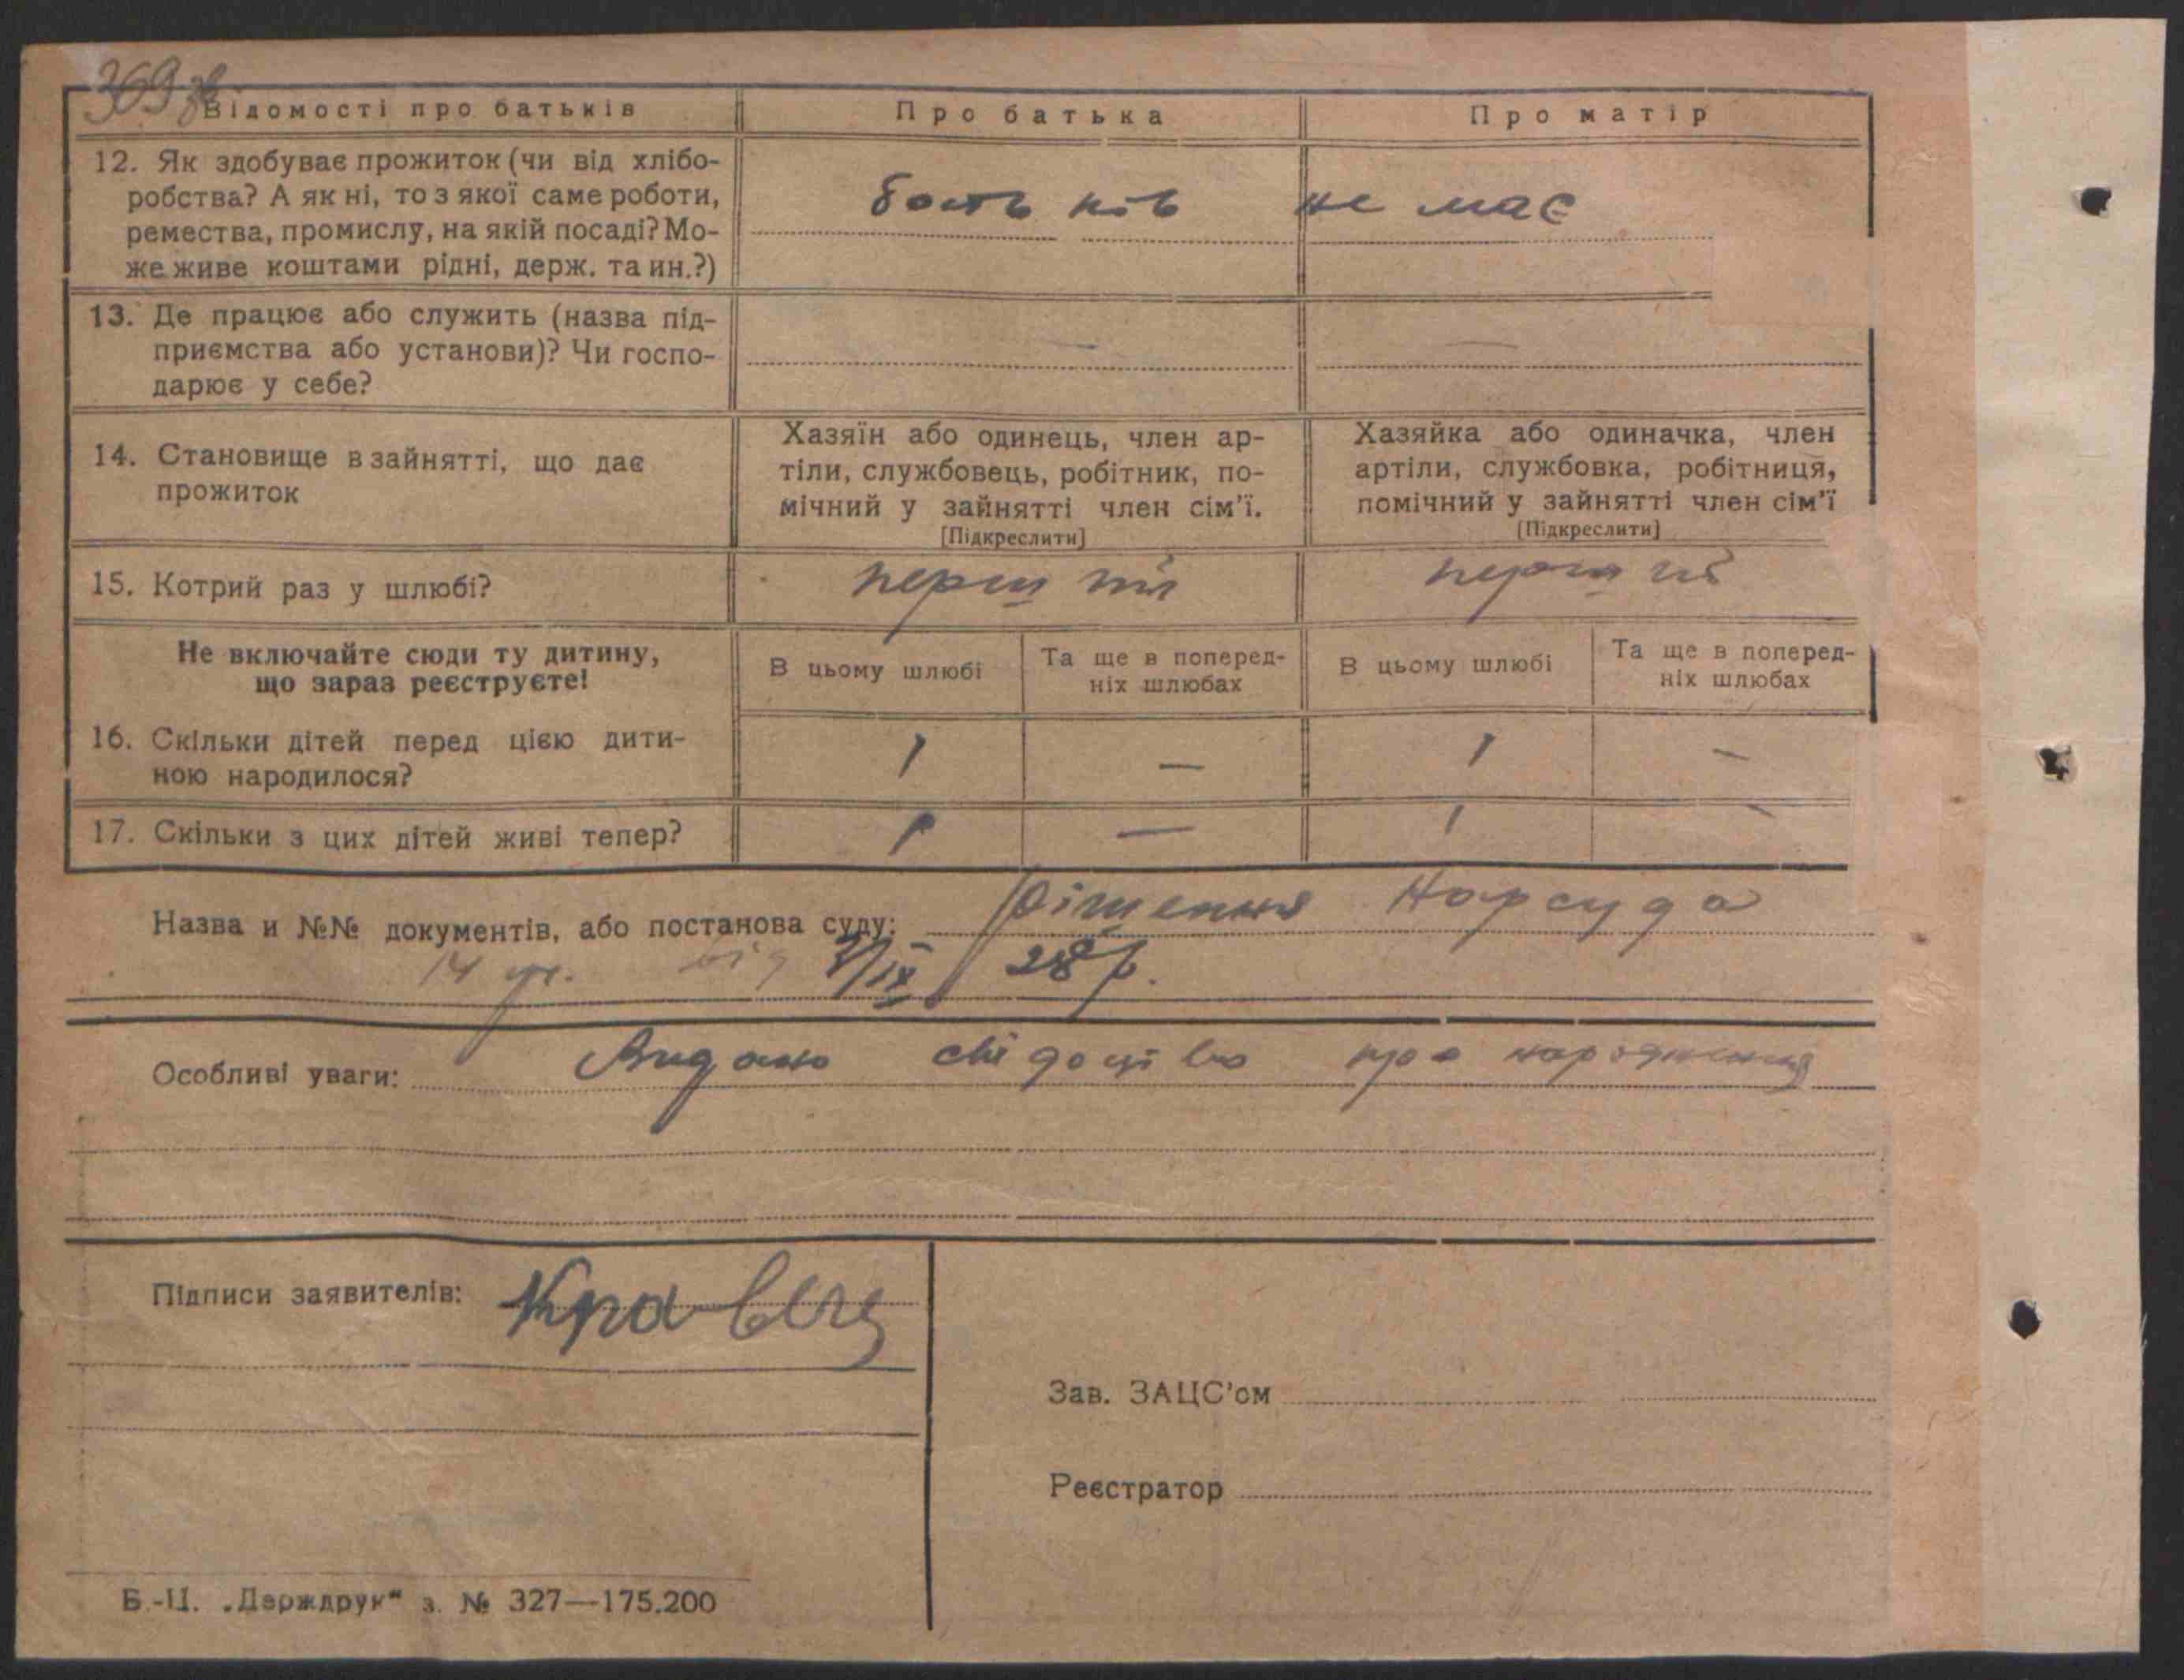 369 зв
Відомості про батьків
Про батька
Про матір
12. Як здобуває прожиток (чи від хлібо-
робства? А як ні, то з якої саме роботи,
ремества, промислу, на якій посаді? Мо-
же живе коштами рідні, держ. та ин.?)
батьків не має
13. Де працює або служить (назва під-
приємства або установи)? Чи госпо-
дарює у себе?
—
—
14. Становище в зайнятті, що дає
прожиток
Хазяїн або одинець, член ар-
тіли, службовець, робітник, по-
мічний у зайнятті член сім'ї.
[Підкреслити]
Хазяйка або одиначка, член
артіли, службовка, робітниця,
помічний у зайнятті член сім'ї
[Підкреслити]
15. Котрий раз у шлюбі?
перший
перший
Не включайте сюди ту дитину,
що зараз реєструєте!
В цьому шлюбі
Та ще в поперед-
ніх шлюбах
В цьому шлюбі
Та ще в поперед-
ніх шлюбах
16. Скільки дітей перед цією дити-
ною народилося?
1 — 1 —
17. Скільки з цих дітей живі тепер?
1 — 1 —
Назва и №№ документів, або постанова суду: Рішення Нарсуда
14 від /IX 28 р.
Особливі уваги: Видано свідоцтво про народження
Підписи заявителів: Кравец
Зав. ЗАЦС'ом
Реєстратор
Б.-Ц. „Держдрук“ з. № 327—175.200